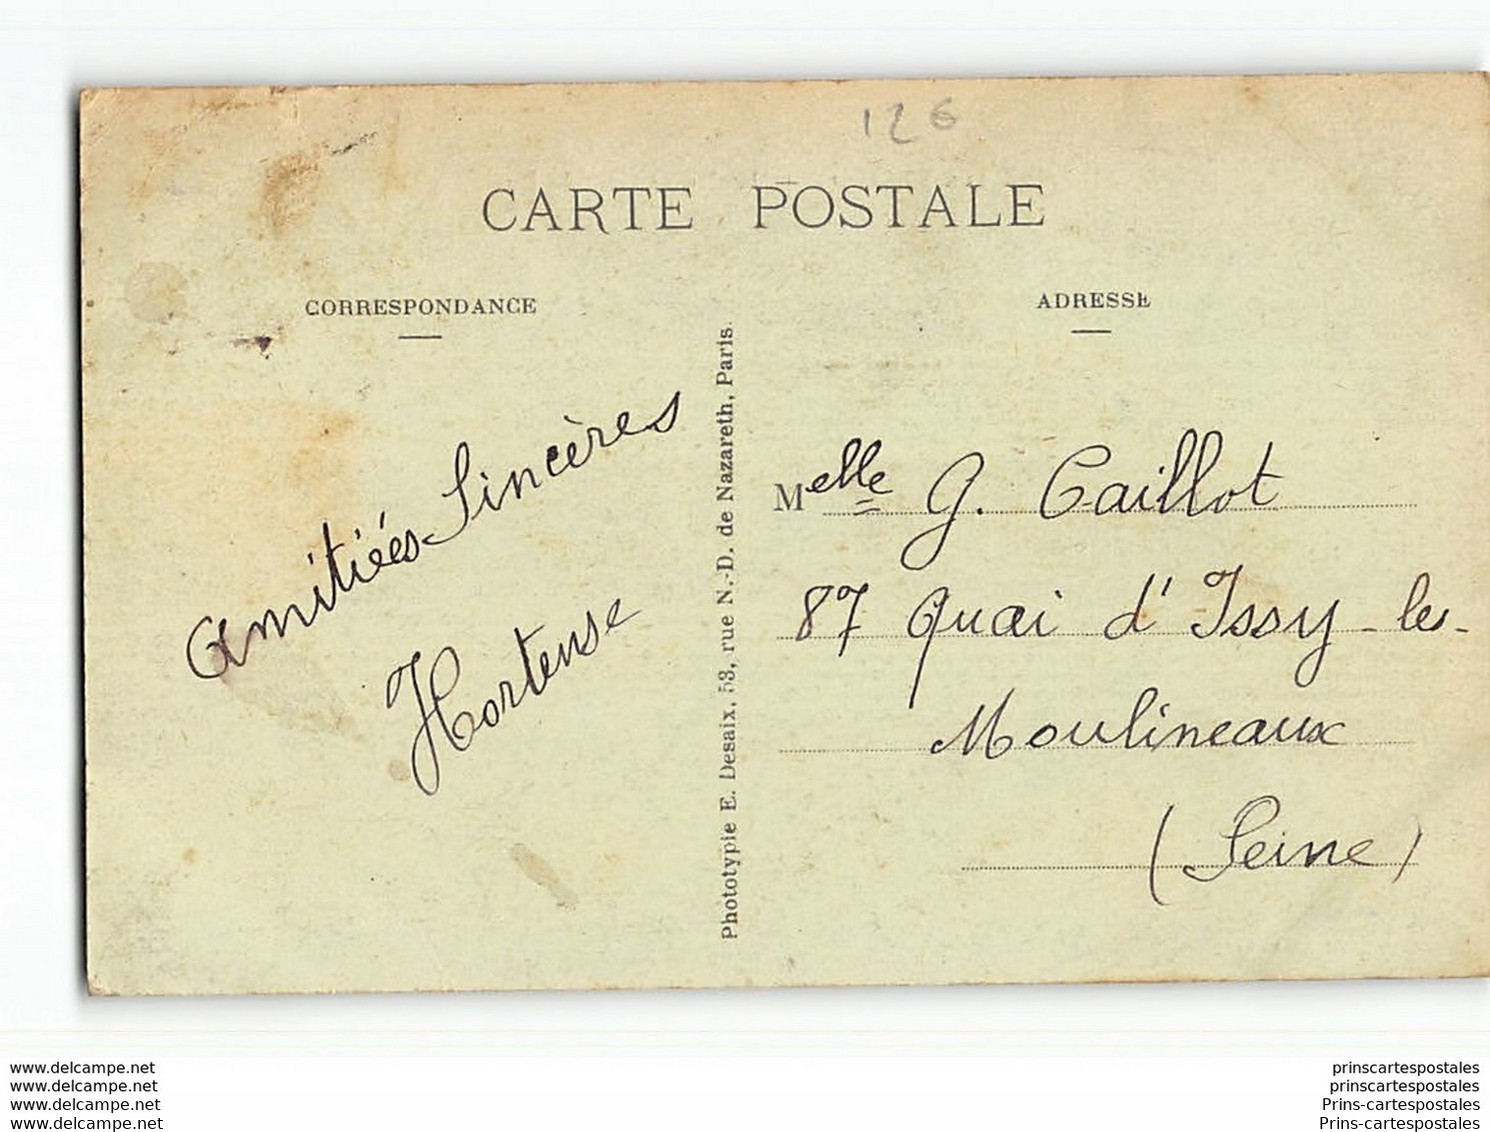 126
CARTE POSTALE
CORRESPONDANCE
Amitiées Sincères
Hortense
Phototypie E. Desaix, 53, rue N.-D. de Nazareth, Paris.
ADRESSE
Melle G. Caillot
87 Quai d'Issy-les-
Moulineaux
(Seine)
www.delcampe.net
www.delcampe.net
www.delcampe.net
www.delcampe.net
prinscartespostales
prinscartespostales
Prins-cartespostales
Prins-cartespostales